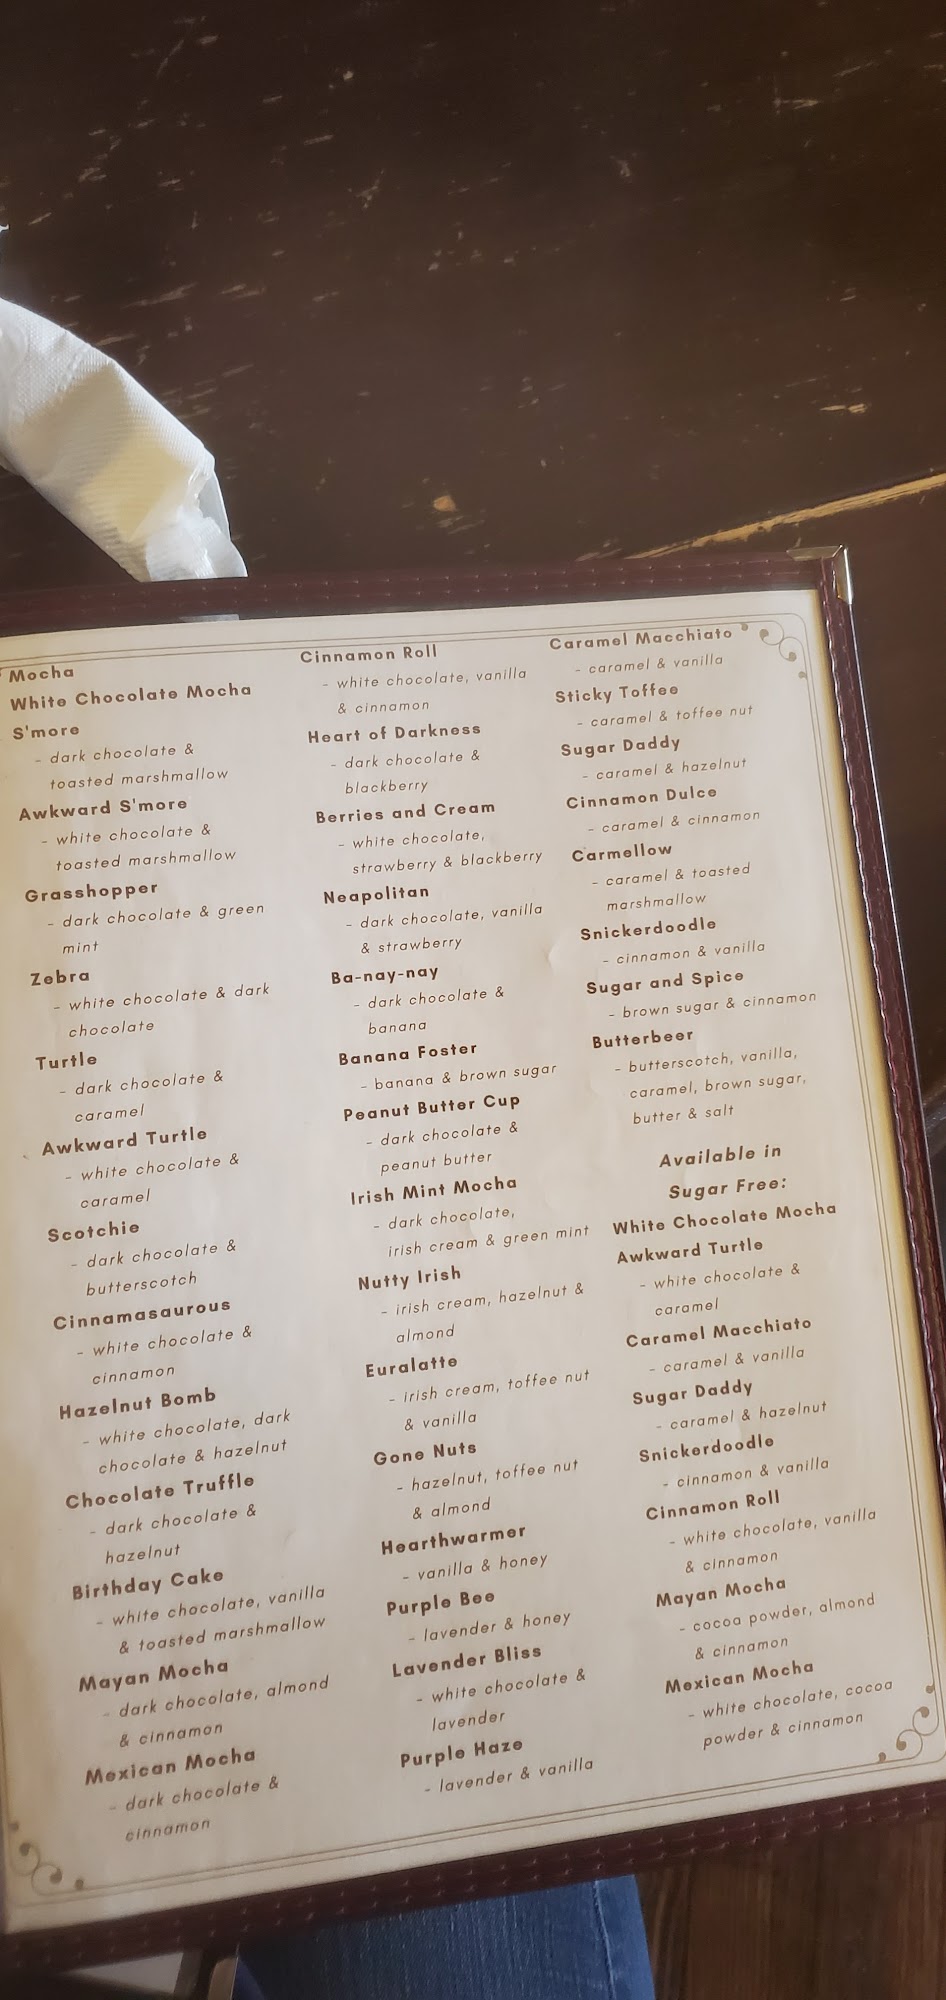 Mocha
White Chocolate Mocha
S'more
- dark chocolate &
toasted marshmallow
Awkward S'more
- white chocolate &
toasted marshmallow
Grasshopper
- dark chocolate & green
mint
Zebra
- white chocolate & dark
chocolate
Turtle
- dark chocolate &
caramel
Awkward Turtle
- white chocolate &
caramel
Scotchie
- dark chocolate &
butterscotch
Cinnamasaurous
- white chocolate &
cinnamon
Hazelnut Bomb
- white chocolate, dark
chocolate & hazelnut
Chocolate Truffle
- dark chocolate &
hazelnut
Birthday Cake
- white chocolate, vanilla
& toasted marshmallow
Mayan Mocha
- dark chocolate, almond
& cinnamon
Mexican Mocha
- dark chocolate &
cinnamon
Cinnamon Roll
- white chocolate, vanilla
& cinnamon
Heart of Darkness
- dark chocolate &
blackberry
Berries and Cream
- white chocolate,
strawberry & blackberry
Neapolitan
- dark chocolate, vanilla
& strawberry
Ba-nay-nay
- dark chocolate &
banana
Banana Foster
- banana & brown sugar
Peanut Butter Cup
- dark chocolate &
peanut butter
Irish Mint Mocha
- dark chocolate,
irish cream & green mint
Nutty Irish
- irish cream, hazelnut &
almond
Euralatte
- irish cream, toffee nut
& vanilla
Gone Nuts
- hazelnut, toffee nut
& almond
Hearthwarmer
- vanilla & honey
Purple Bee
- lavender & honey
Lavender Bliss
- white chocolate &
lavender
Purple Haze
- lavender & vanilla
Caramel Macchiato
- caramel & vanilla
Sticky Toffee
- caramel & toffee nut
Sugar Daddy
- caramel & hazelnut
Cinnamon Dulce
- caramel & cinnamon
Carmellow
- caramel & toasted
marshmallow
Snickerdoodle
- cinnamon & vanilla
Sugar and Spice
- brown sugar & cinnamon
Butterbeer
- butterscotch, vanilla,
caramel, brown sugar,
butter & salt
Available in
Sugar Free:
White Chocolate Mocha
Awkward Turtle
- white chocolate &
caramel
Caramel Macchiato
- caramel & vanilla
Sugar Daddy
- caramel & hazelnut
Snickerdoodle
- cinnamon & vanilla
Cinnamon Roll
- white chocolate, vanilla
& cinnamon
Mayan Mocha
- cocoa powder, almond
& cinnamon
Mexican Mocha
- white chocolate, cocoa
powder & cinnamon